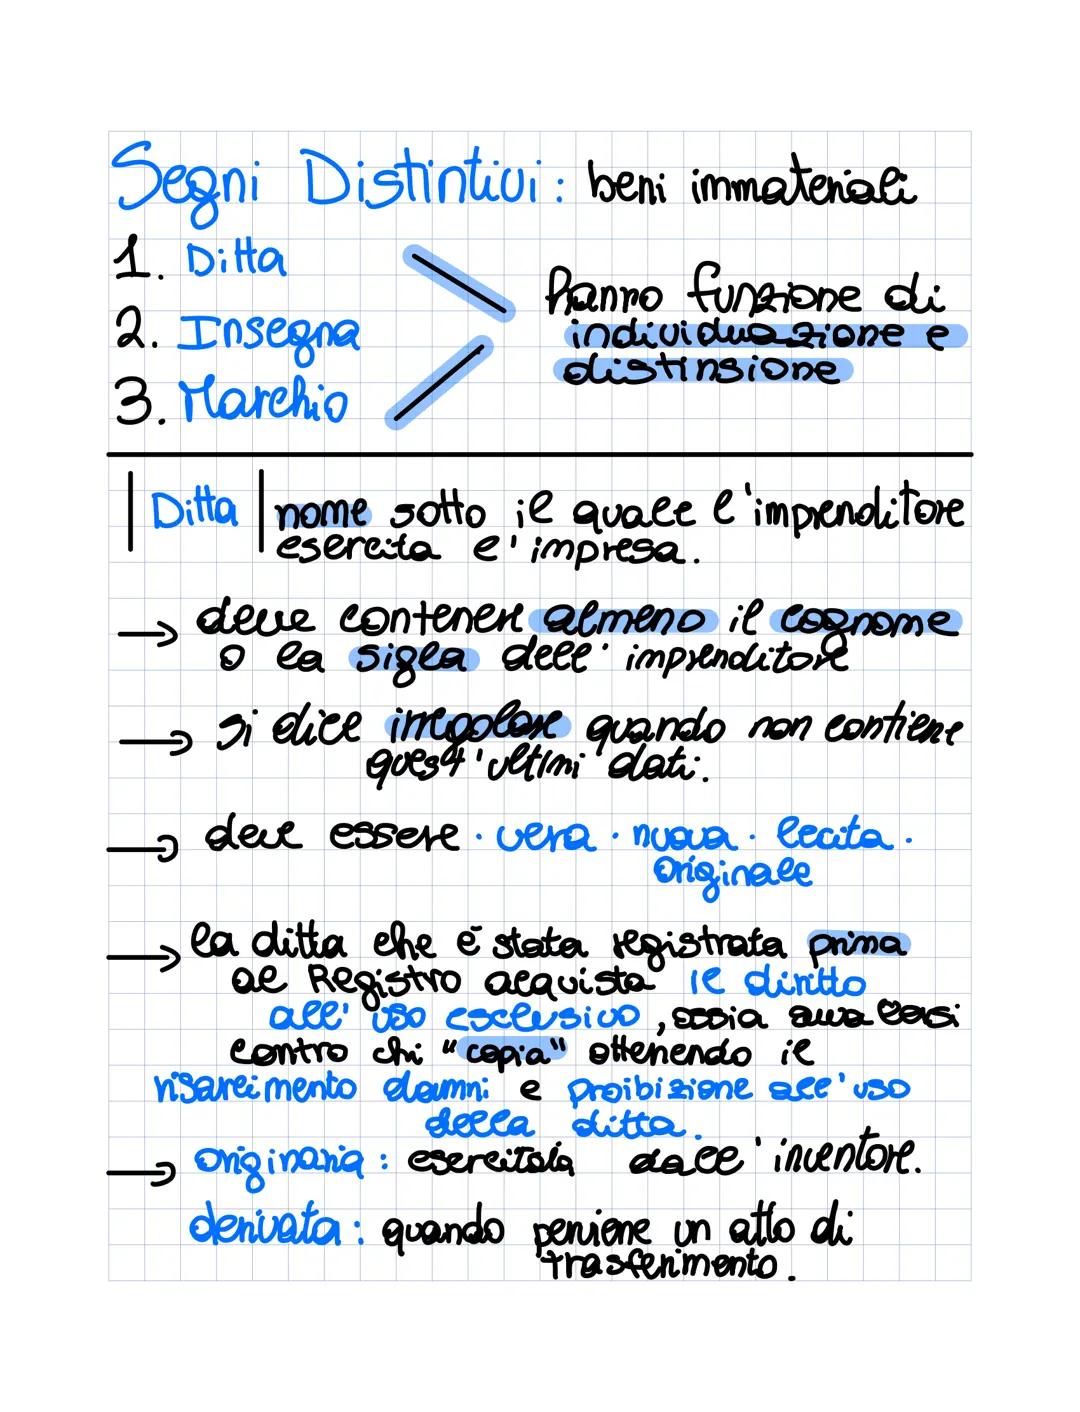 Segni Distintivi: beni immateriali
1. Ditta
2. Insegna
3. Marchio
hanno funzione di
individuazione e
distinsione
Ditta nome sotto il quale l'imprenditore
esercita l'impresa.
→ deve contenere almeno il cognome
o la sigla dell'imprenditore
→ si dice irregolare quando non contiene
quest'ultimi dati.
→ deve essere · vera · nuova · lecita ·
originale
→ la ditta che è stata registrata prima
al Registro acquista il diritto
all'uso esclusivo, ossia avvalersi
contro chi "copia" ottenendo il
risarcimento danni e proibizione all'uso
della ditta.
→ originaria: esercitata dall'inventore.
derivata: quando perviene un atto di
trasferimento.